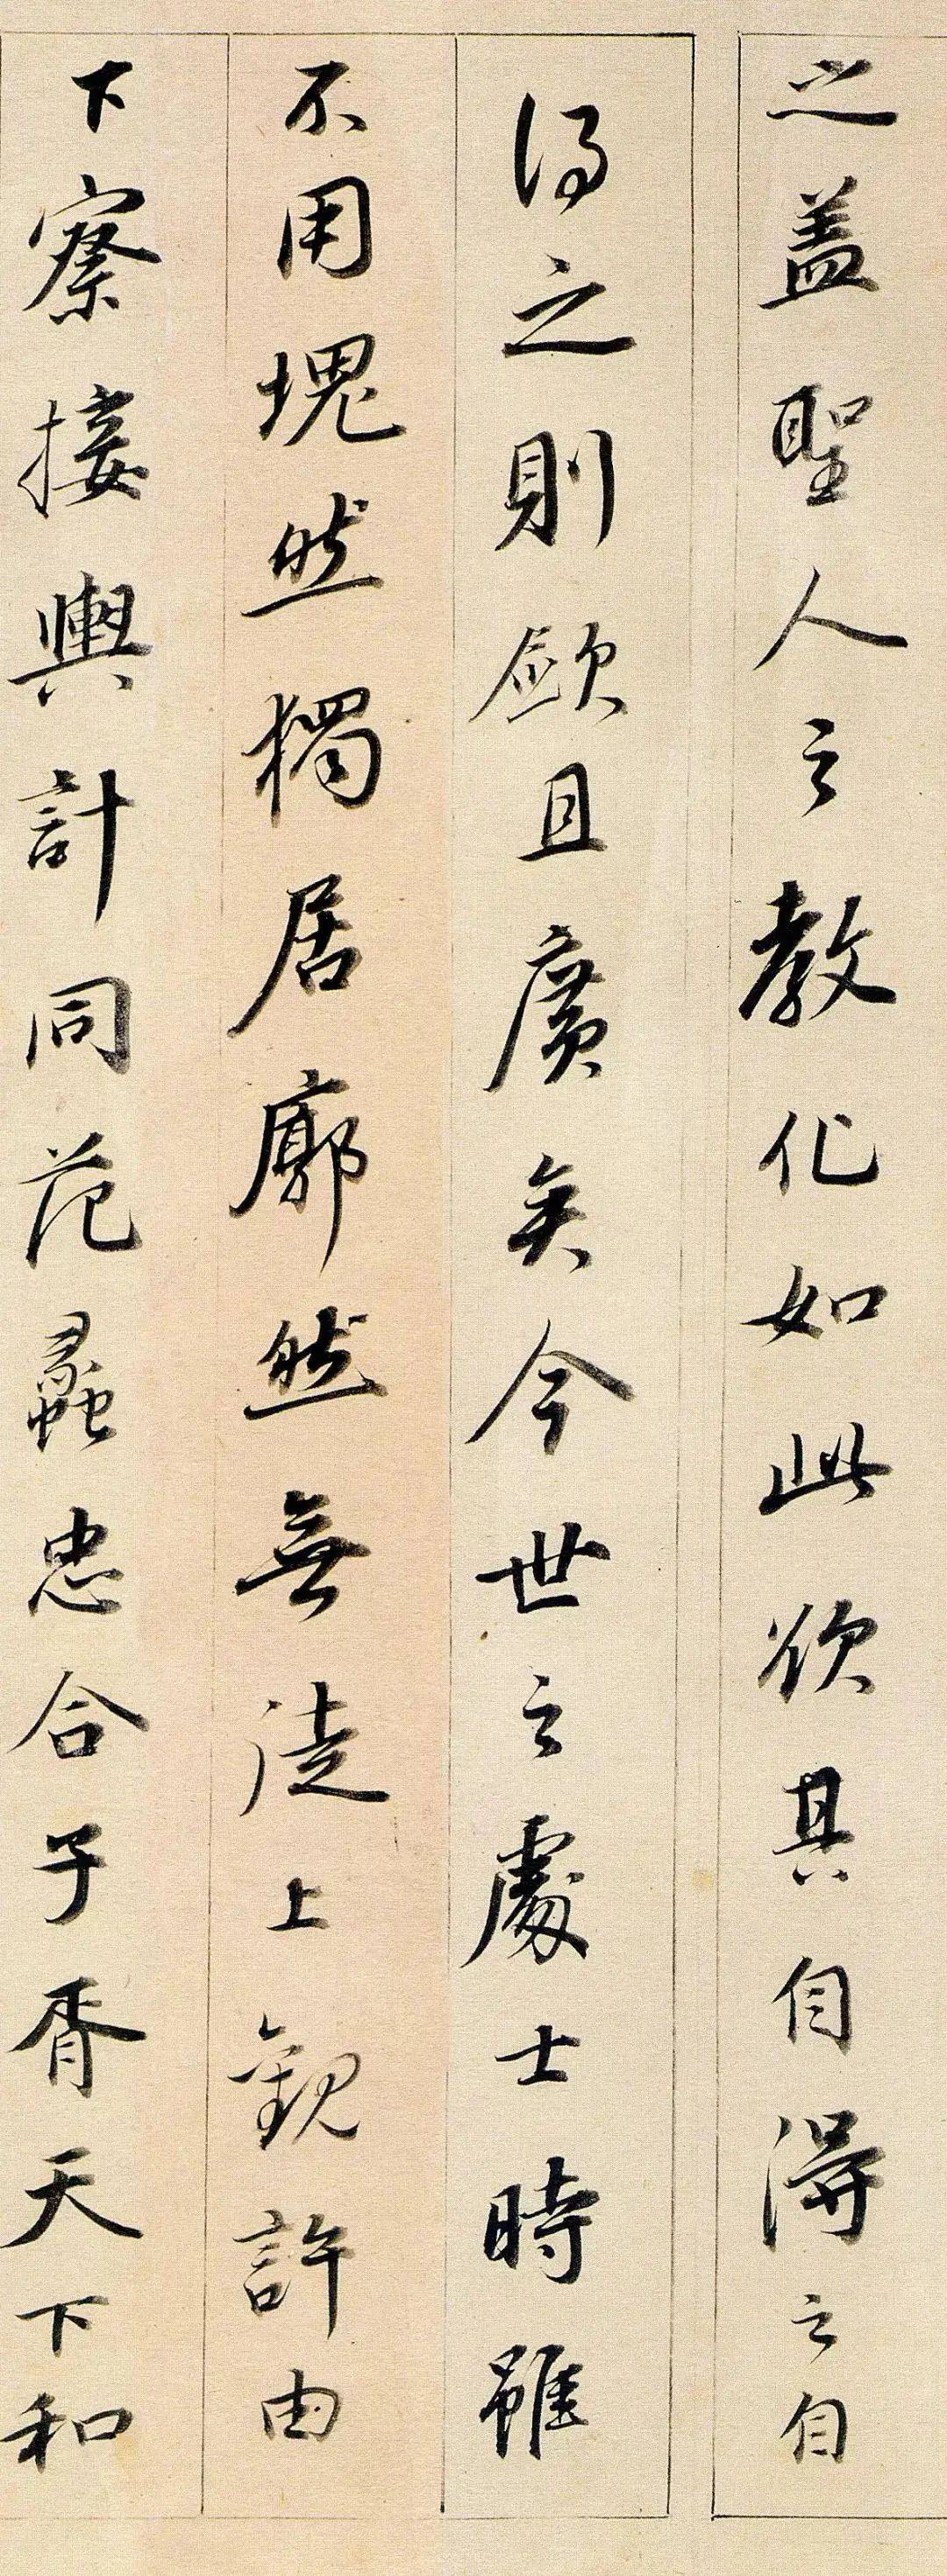 之盖聖人之教化如此欲其自得之自
得之則且廣矣今世之處士時雖
不用塊然獨居廓然無徒上觀許由
下察接輿計同范蠡忠合子胥天下和